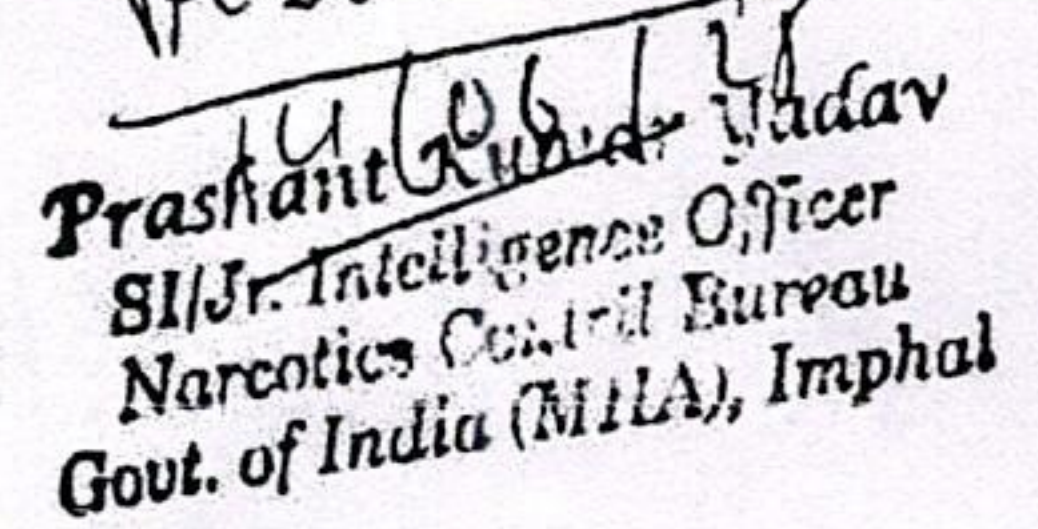 Prashant Kumar Yadav
SI/Jr. Intelligence Officer
Narcotics Control Bureau
Govt. of India (MHA), Imphal